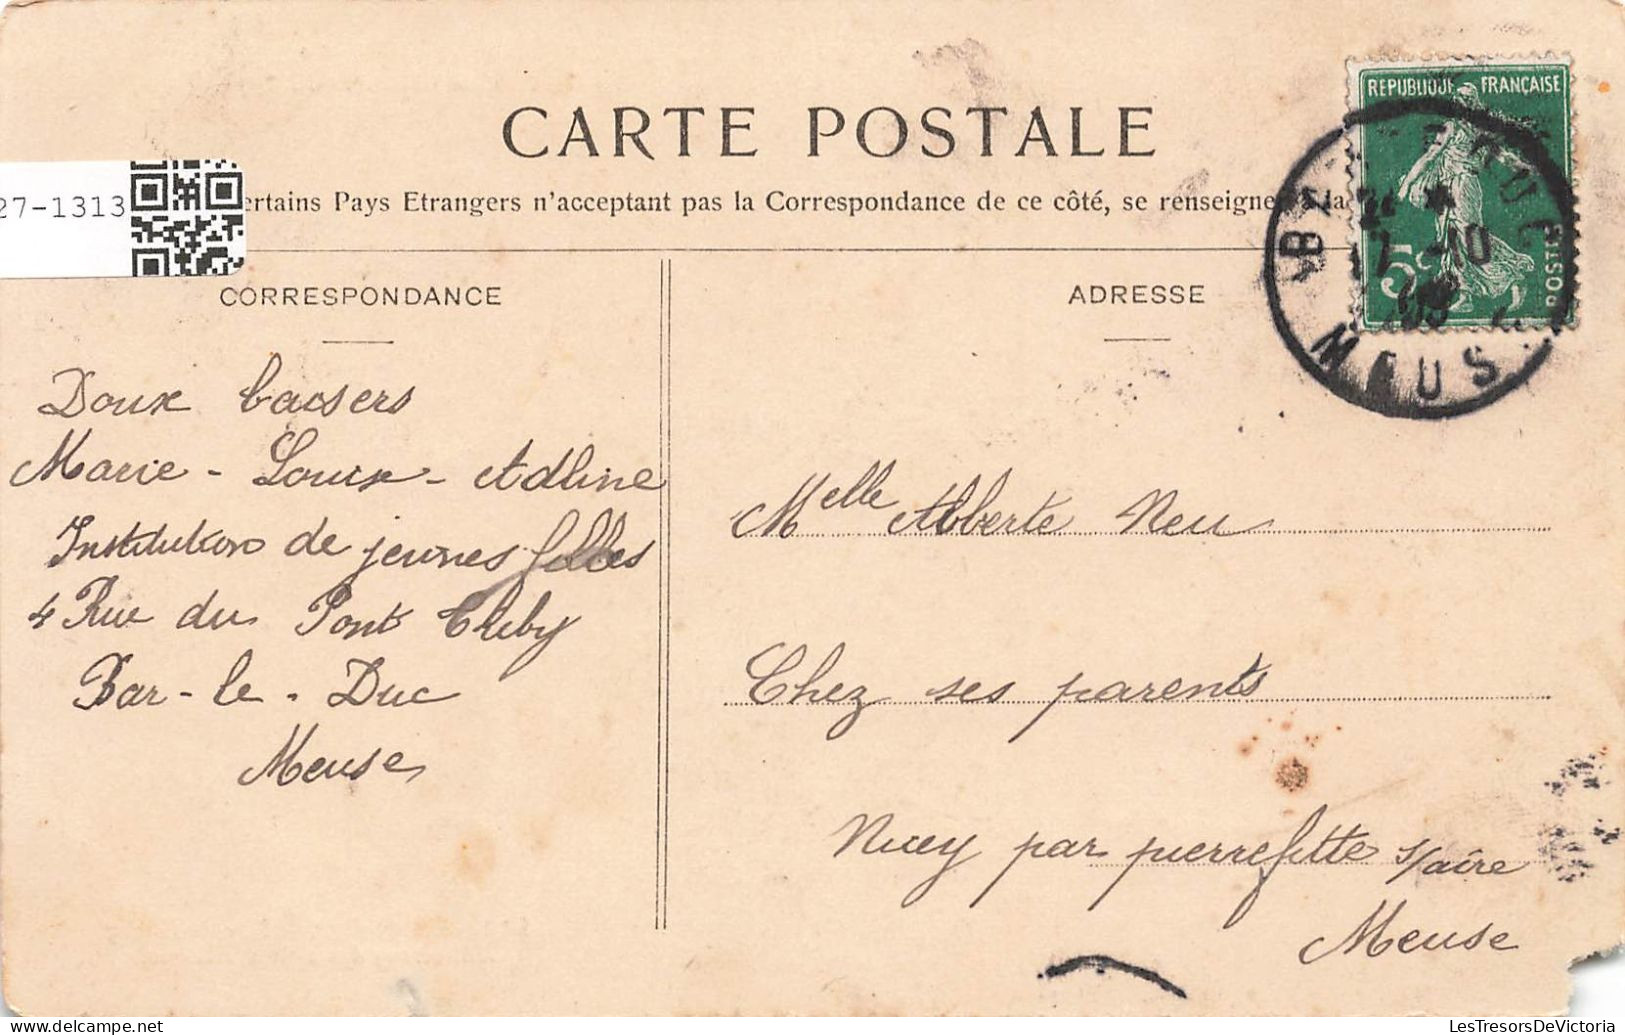 CARTE POSTALE
27-1313
ertains Pays Etrangers n'acceptant pas la Correspondance de ce côté, se renseigne la
CORRESPONDANCE
ADRESSE
REPUBLIQUE FRANÇAISE
POSTES
5c
7 -10
MEUS
Doux baisers
Marie - Louise - Adline
Institution de jeunes filles
4 Rue du Pont
Bar - le - Duc
Meuse
Melle Alberte Neu
Chez ses parents
Nicey par pierrefitte s/aire
Meuse
LesTresorsDeVictoria
www.delcampe.net